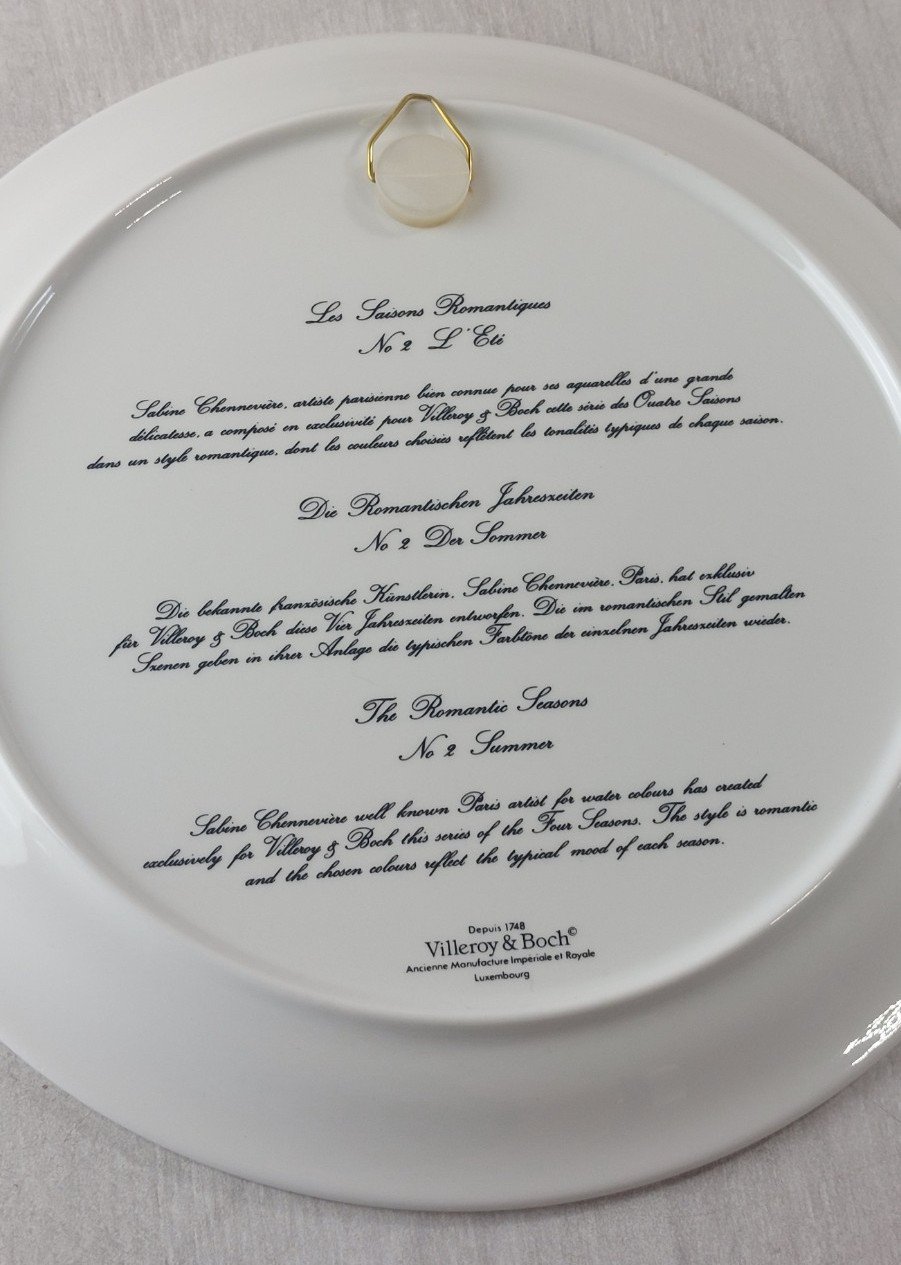 Les Saisons Romantiques
No 2 L'Eté
Sabine Chennevière, artiste parisienne bien connue pour ses aquarelles d'une grande
délicatesse, a composé en exclusivité pour Villeroy & Boch cette série des Quatre Saisons
dans un style romantique, dont les couleurs choisies reflètent les tonalités typiques de chaque saison.
Die Romantischen Jahreszeiten
No 2 Der Sommer
Die bekannte französische Künstlerin, Sabine Chennevière, Paris, hat exklusiv
für Villeroy & Boch diese Vier Jahreszeiten entworfen. Die im romantischen Stil gemalten
Szenen geben in ihrer Anlage die typischen Farbtöne der einzelnen Jahreszeiten wieder.
The Romantic Seasons
No 2 Summer
Sabine Chennevière well known Paris artist for water colours has created
exclusively for Villeroy & Boch this series of the Four Seasons. The style is romantic
and the chosen colours reflect the typical mood of each season.
Depuis 1748
Villeroy & Boch©
Ancienne Manufacture Imperiale et Royale
Luxembourg